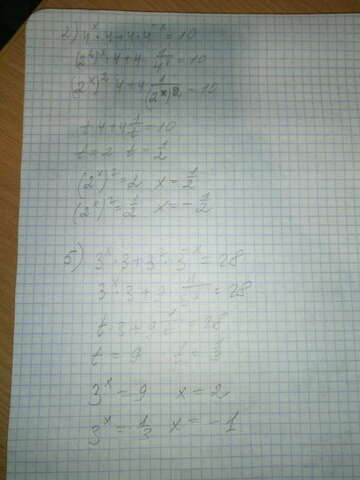 2) 4^x · 4 + 4 · 4^-x = 10
(2^2)^x · 4 + 4 · 1/4^x = 10
(2^x)^2 · 4 + 4 · 1/(2^x)^2 = 10
t · 4 + 4 1/t = 10
t = 2 t = 1/2
(2^x)^2 = 2 x = 1/2
(2^x)^2 = 1/2 x = -1/2
5) 3^x · 3 + 3^2 · 3^-x = 28
3^x · 3 + 9 · 1/3^x = 28
t · 3 + 9 · 1/t = 28
t = 9 t = 1/3
3^x = 9 x = 2
3^x = 1/3 x = -1